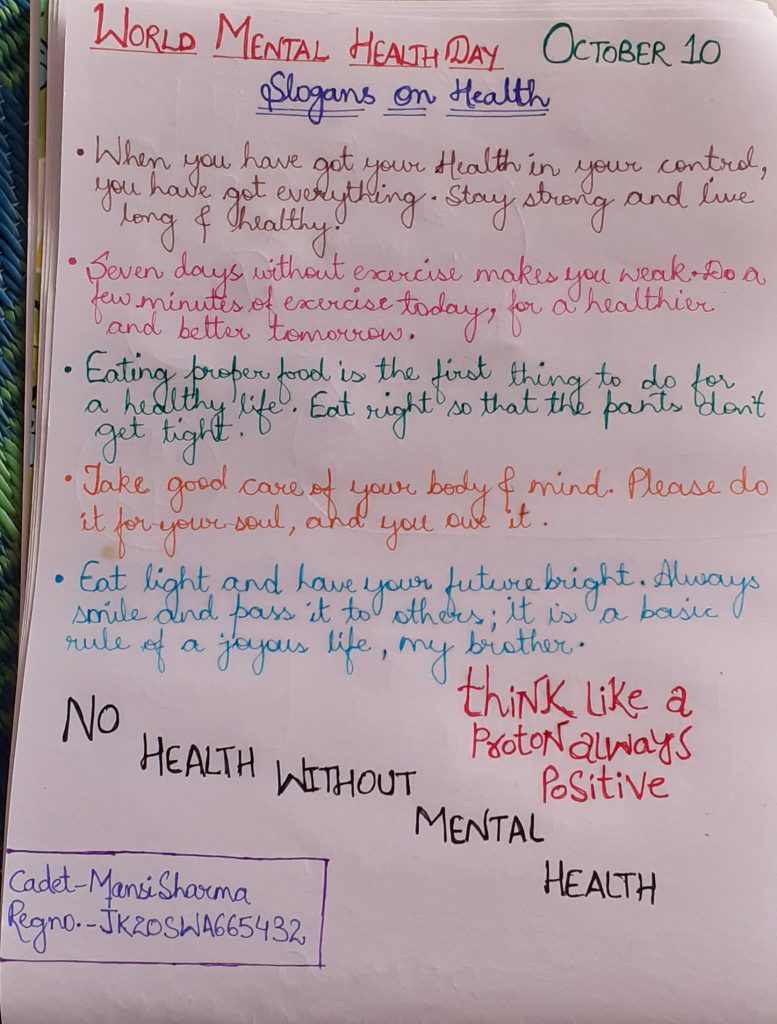 WORLD MENTAL HEALTH DAY OCTOBER 10
Slogans on Health
• When you have got your Health in your control,
you have got everything. Stay strong and live
long & healthy.
• Seven days without exercise makes you weak. Do a
few minutes of exercise today, for a healthier
and better tomorrow.
• Eating proper food is the first thing to do for
a healthy life. Eat right so that the pants don't
get tight.
• Take good care of your body & mind. Please do
it for your soul, and you owe it.
• Eat light and have your future bright. Always
smile and pass it to others; it is a basic
rule of a joyous life, my brother.
THINK LIKE A
PROTON ALWAYS
POSITIVE
NO
HEALTH WITHOUT
MENTAL
HEALTH
Cadet-Mansi Sharma
Regno.-JK20SWA665432